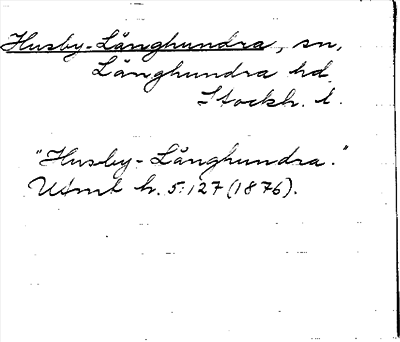 Husby-Långhundra, sn,
Långhundra hd.
Stockh. l.
"Husby-Långhundra."
Utml h. 5:127 (1876).